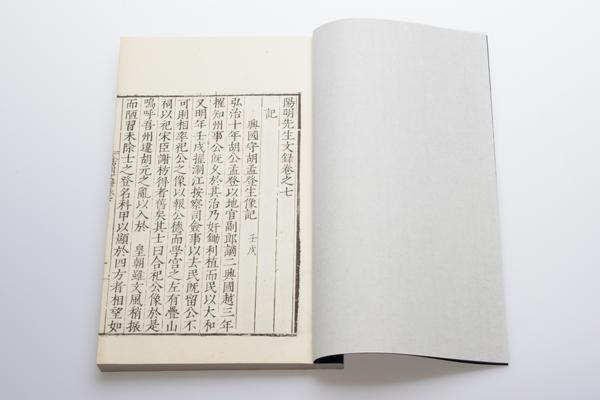 陽明先生文録卷之七
記
興國守胡孟登生像記 壬戌
弘治十年胡公孟登以地官副郎謫二興國越三年
擢知州事公既久於其治乃奸鋤利植而民以大和
又明年壬戌擢浙江按察司僉事以去民既留公不
可則相率祀公之像以報公德而學宮之左有疊山
祠以祀宋臣謝枋得者舊矣其士曰合祀公像於是
嗚呼吾州違胡元之亂以入於 皇朝雖文風稍振
而陋習未除士之登名科甲以顯於四方者相望如